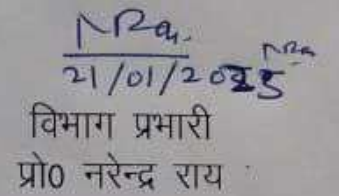 NRai
21/01/2025
विभाग प्रभारी
प्रो0 नरेन्द्र राय